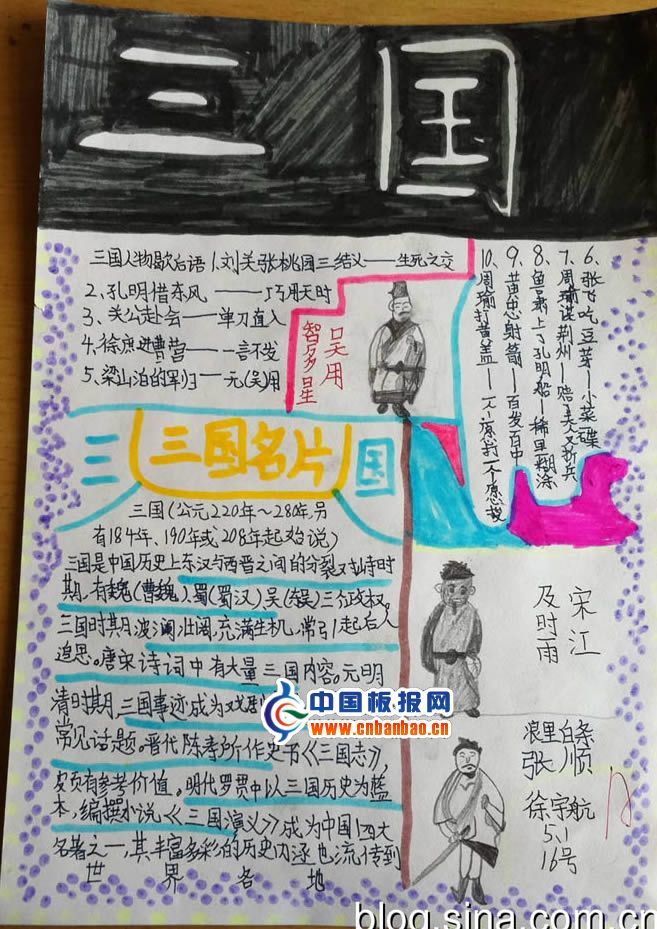 三国
三国人物歇后语 1.刘关张桃园三结义——生死之交
2、孔明借东风——巧用天时
3、关公赴会——单刀直入
4、徐庶进曹营——一言不发
5、梁山泊的军师——无(吴)用
6、张飞吃豆芽——小菜一碟
7、周瑜谋荆州——赔了夫人又折兵
8、鱼乘上了孔明船——稀里糊涂
9、黄忠射箭——百发百中
10、周瑜打黄盖——一个愿打一个愿挨
吴用
智多星
三
三国名片
国
三国(公元220年~280年,另
有184年、190年或208年起始说)
三国是中国历史上东汉与西晋之间的分裂对峙时
期,有魏(曹魏)、蜀(蜀汉)、吴(东吴)三个政权。
三国时期波澜壮阔,充满生机,常引起后人
追思。唐宋诗词中有大量三国内容。元明
清时期,三国事迹成为戏
常见话题。晋代陈寿所作史书《三国志》,
颇有参考价值。明代罗贯中以三国历史为蓝
本,编撰小说《三国演义》成为中国四大
名著之一,其丰富多彩的历史内涵也流传到
世界各地
宋江
及时雨
浪里白条
张顺
徐宇航
5.1
16号
中国板报网
www.cnbanbao.cn
blog.sina.com.cn